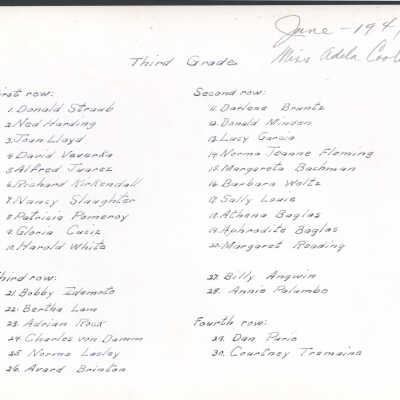 June - 194
Miss Adela
Third Grade
First row:
1. Donald Straub
2. Ned Harding
3. Joan Lloyd
4. David Vaverka
5. Alfred Juarez
6. Richard Kirkendall
7. Nancy Slaughter
8. Patricia Pomeroy
9. Gloria
10. Harold White
Second row:
11. Darlene Bruntz
12. Donald Minden
13. Lucy Garcia
14. Norma Jeanne Fleming
15. Margareta Bachman
16. Barbara Waltz
17. Sally Louie
18. Athena Baglas
19. Aphrodite Baglas
20. Margaret Reading
Third row:
21. Bobby Idemoto
22. Bertha Lam
23. Adrian Roux
24. Charles von Damm
25. Norma Lasley
26. Avard Brinton
27. Billy Angwin
28. Annie Palumbo
Fourth row:
29. Dan
30. Courtney Tremaine